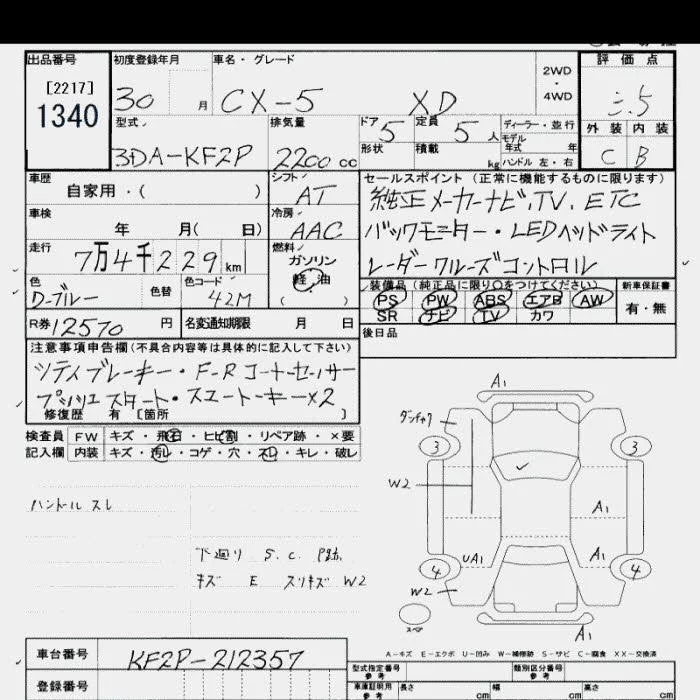 出品番号 初度登録年月 車名・グレード 2WD・4WD 評価点
[2217]
1340 30 月 CX-5 XD 3.5
型式 排気量 ドア 5 定員 5人 ディーラー・並行 外装 内装
3DA-KF2P 2200cc 形状 積載 kg モデル年式 年 ハンドル 左・右 C B
車歴 シフト セールスポイント (正常に機能するものに限ります)
自家用・( ) AT 純正メーカーナビ,TV,ETC
車検 冷房 バックモニター・LEDヘッドライト
年 月( 日) AAC レーダークルーズコントロール
走行 7万4千229km 燃料 ガソリン 軽・油 ( )
色 D-ブルー 色替 色コード 42M
装備品 (純正品に限り○をつけてください) 新車保証書
PS PW ABS エアB AW 有・無
SR ナビ TV カワ
R券 12570円 名変通知期限 月 日 後日品
注意事項申告欄(不具合内容等は具体的に記入して下さい)
シティブレーキ・F-Rコーナーセンサー
プッシュスタート・スマートキー×2
修復歴 有 [箇所 ]
検査員 FW キズ・飛石・ヒビ割・リペア跡・×要
記入欄 内装 キズ・汚レ・コゲ・穴・スレ・キレ・破レ
A1
3 3
W2
ハンドル スレ A1
下廻り S.C. UA1 A1
キズ E スリキズ W2 4 4
W2
スペア
A1
A-キズ E-エクボ U-凹み W-補修跡 S-サビ C-腐食 XX-交換済
車台番号 KF2P-212357
型式指定番号 参考 類別区分番号 参考
登録番号 車庫証明用 参考 長さ cm 幅 cm 高さ cm